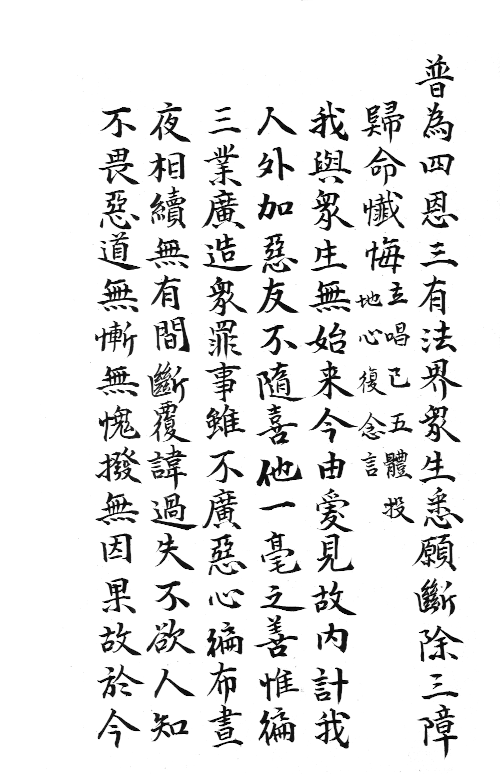 普為四恩三有法界眾生悉願斷除三障
歸命懺悔立唱已五體投地心復念言
我與眾生無始来今由愛見故內計我
人外加惡友不隨喜他一毫之善惟徧
三業廣造眾罪事雖不廣惡心徧布晝
夜相續無有間斷覆諱過失不欲人知
不畏惡道無慚無愧撥無因果故於今